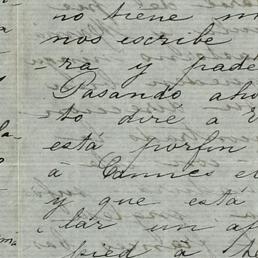 no tiene
nos escribe
-ra y padé
Pasando aho
-to diré a V
está porfin
á Cannes e
y que está
-lar un a
pied a